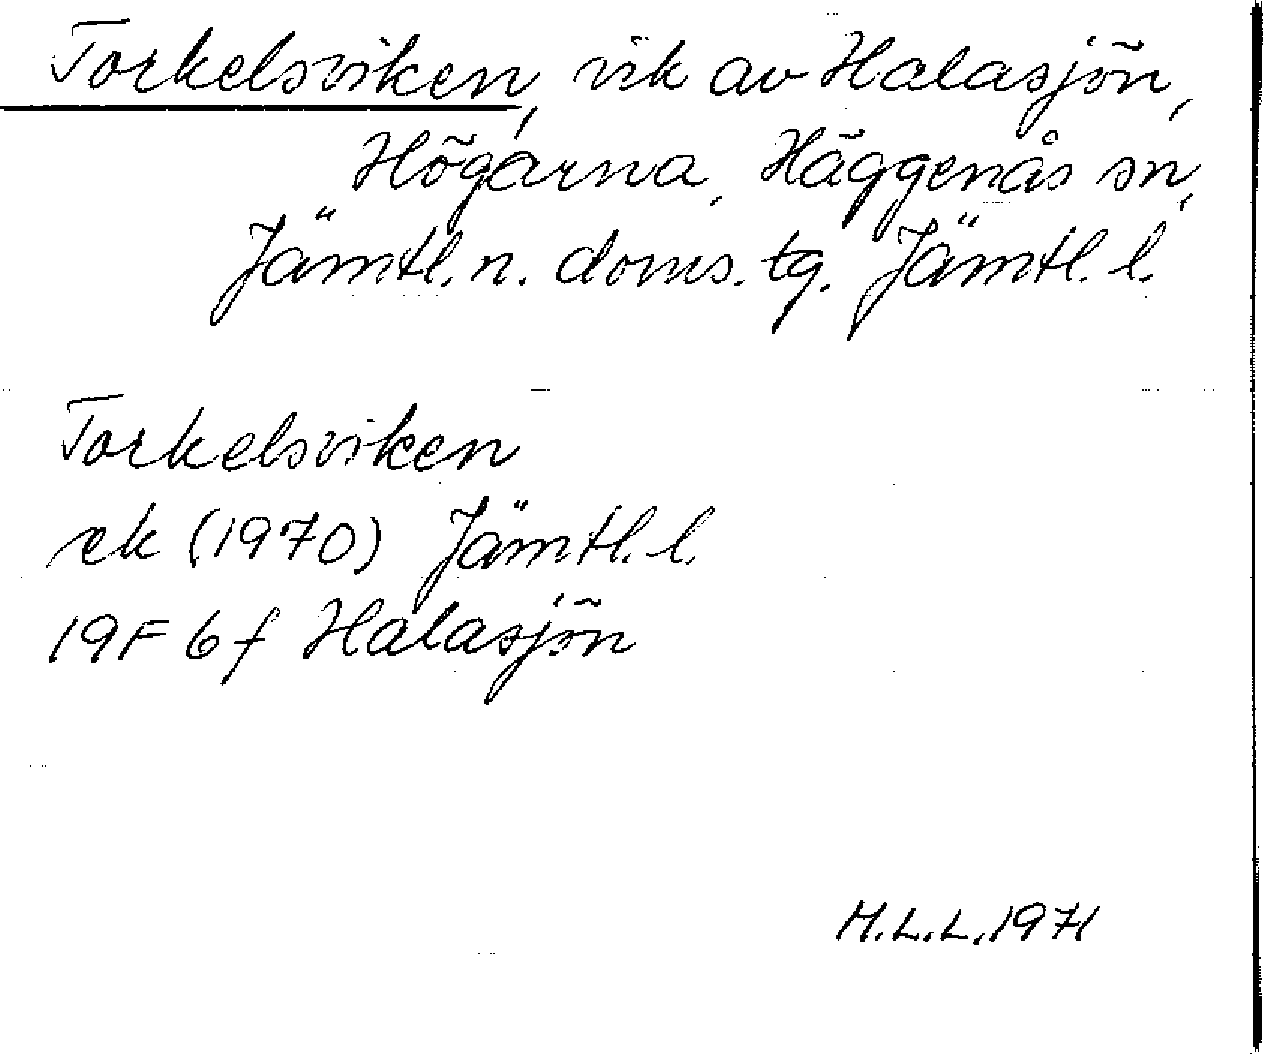 Torkelsviken, vik av Halasjön,
Högarna, Häggenås sn,
Jämtl. n. doms. tg. Jämtl. l.
Torkelsviken
ek (1970) Jämtl. l.
19F 6f Halasjön
M.L.L. 1971